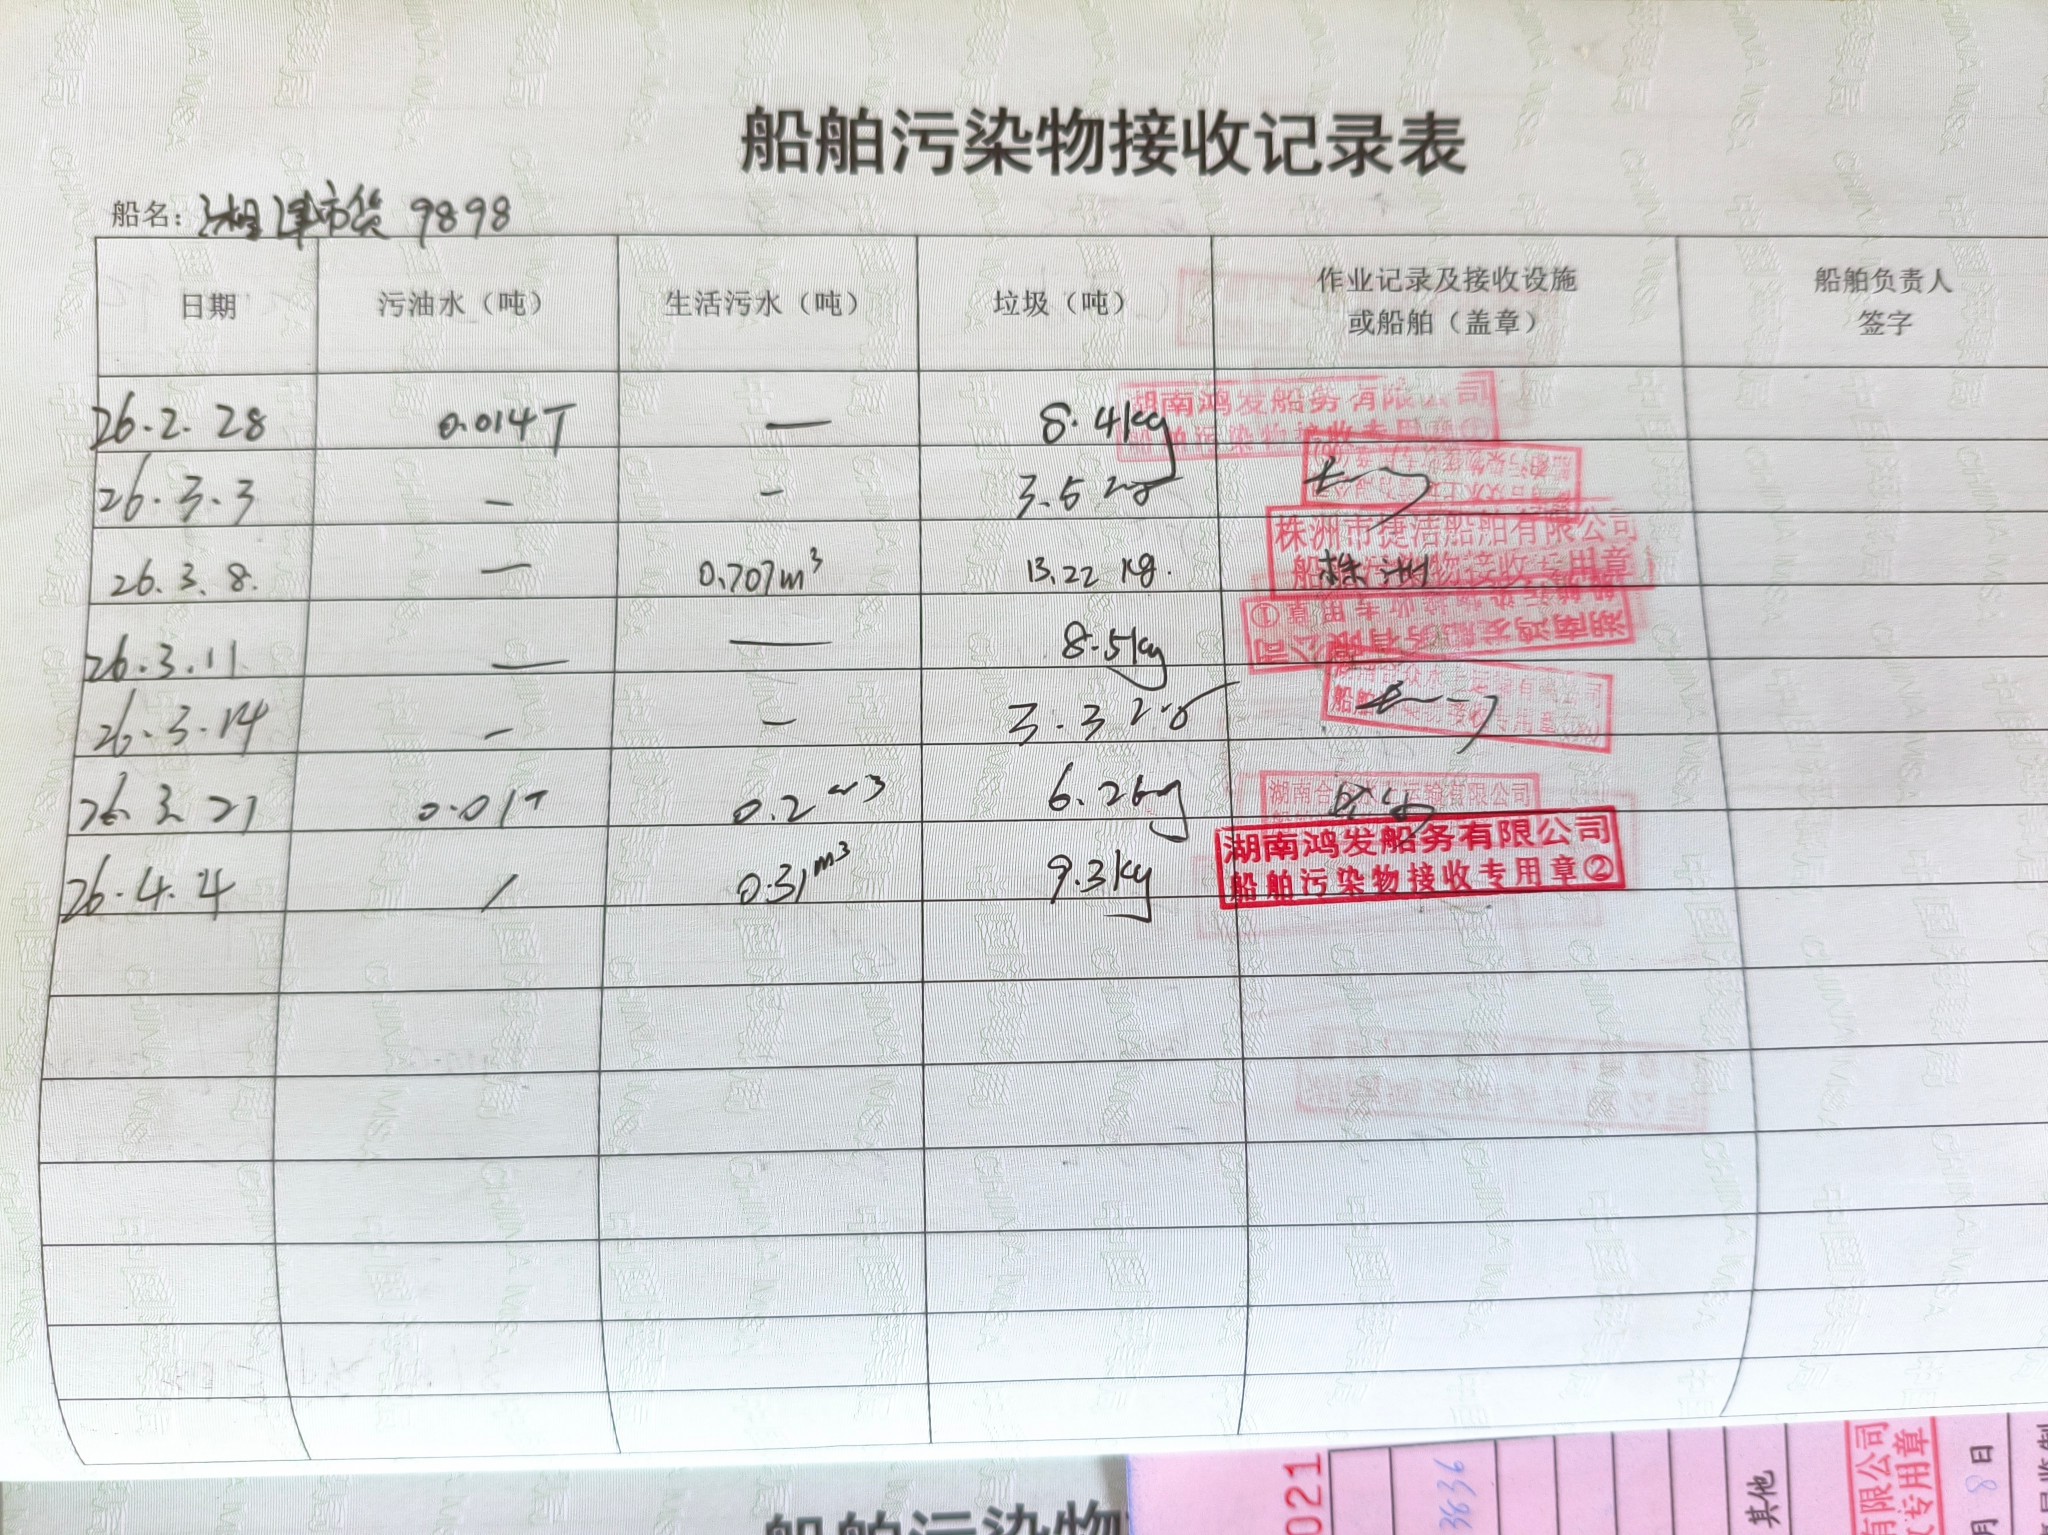 船舶污染物接收记录表
船名: 湘津市货 9898
日期 污油水（吨） 生活污水（吨） 垃圾（吨） 作业记录及接收设施或船舶（盖章） 船舶负责人签字
26.2.28 0.014T — 8.4kg 湖南鸿发船务有限公司 船舶污染物接收专用章
26.3.3 — — 3.5
26.3.8. — 0.707m³ 13.22 kg. 株洲市捷洁船舶有限公司 船舶污染物接收专用章 株洲
26.3.11 — — 8.5kg 湖南鸿发船务有限公司 船舶污染物接收专用章①
26.3.14 — — 3.3 船舶污染物接收专用章
26.3.21 0.01T 0.2 m³ 6.2kg 湖南合众水上运输有限公司
26.4.4 / 0.31m³ 9.3kg 湖南鸿发船务有限公司 船舶污染物接收专用章②
船舶污染物
021
3836
其他
有限公司
专用章
月 8 日